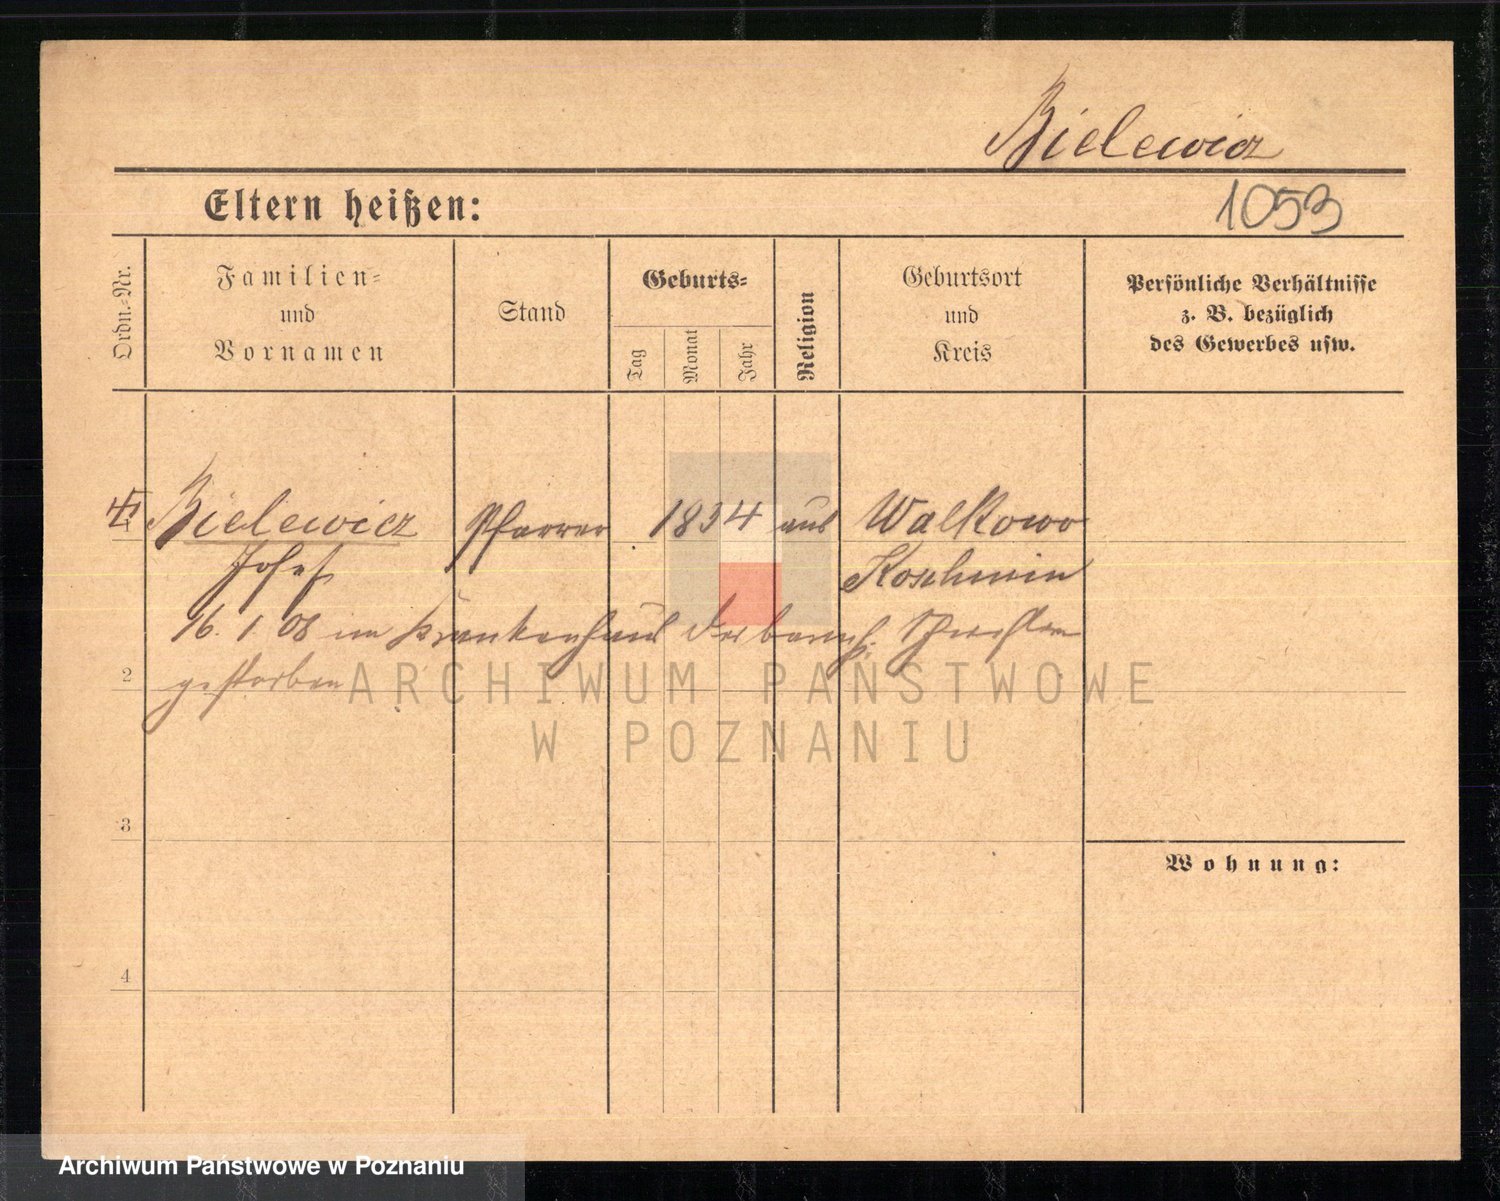 Bielewicz
Eltern heißen:
1053
Ordn.-Nr.
Familien-
und
Vornamen
Stand
Geburts-
Tag
Monat
Jahr
Religion
Geburtsort
und
Kreis
Persönliche Verhältnisse
z. B. bezüglich
des Gewerbes usw.
1 Bielewicz Pfarrer 1834 aus Walkowo
Josef Koschmin
16. 1. 08 im Krankenhaus der barmh. Schwestern
2 gestorben
ARCHIWUM PAŃSTWOWE
W POZNANIU
3
Wohnung:
4
Archiwum Państwowe w Poznaniu